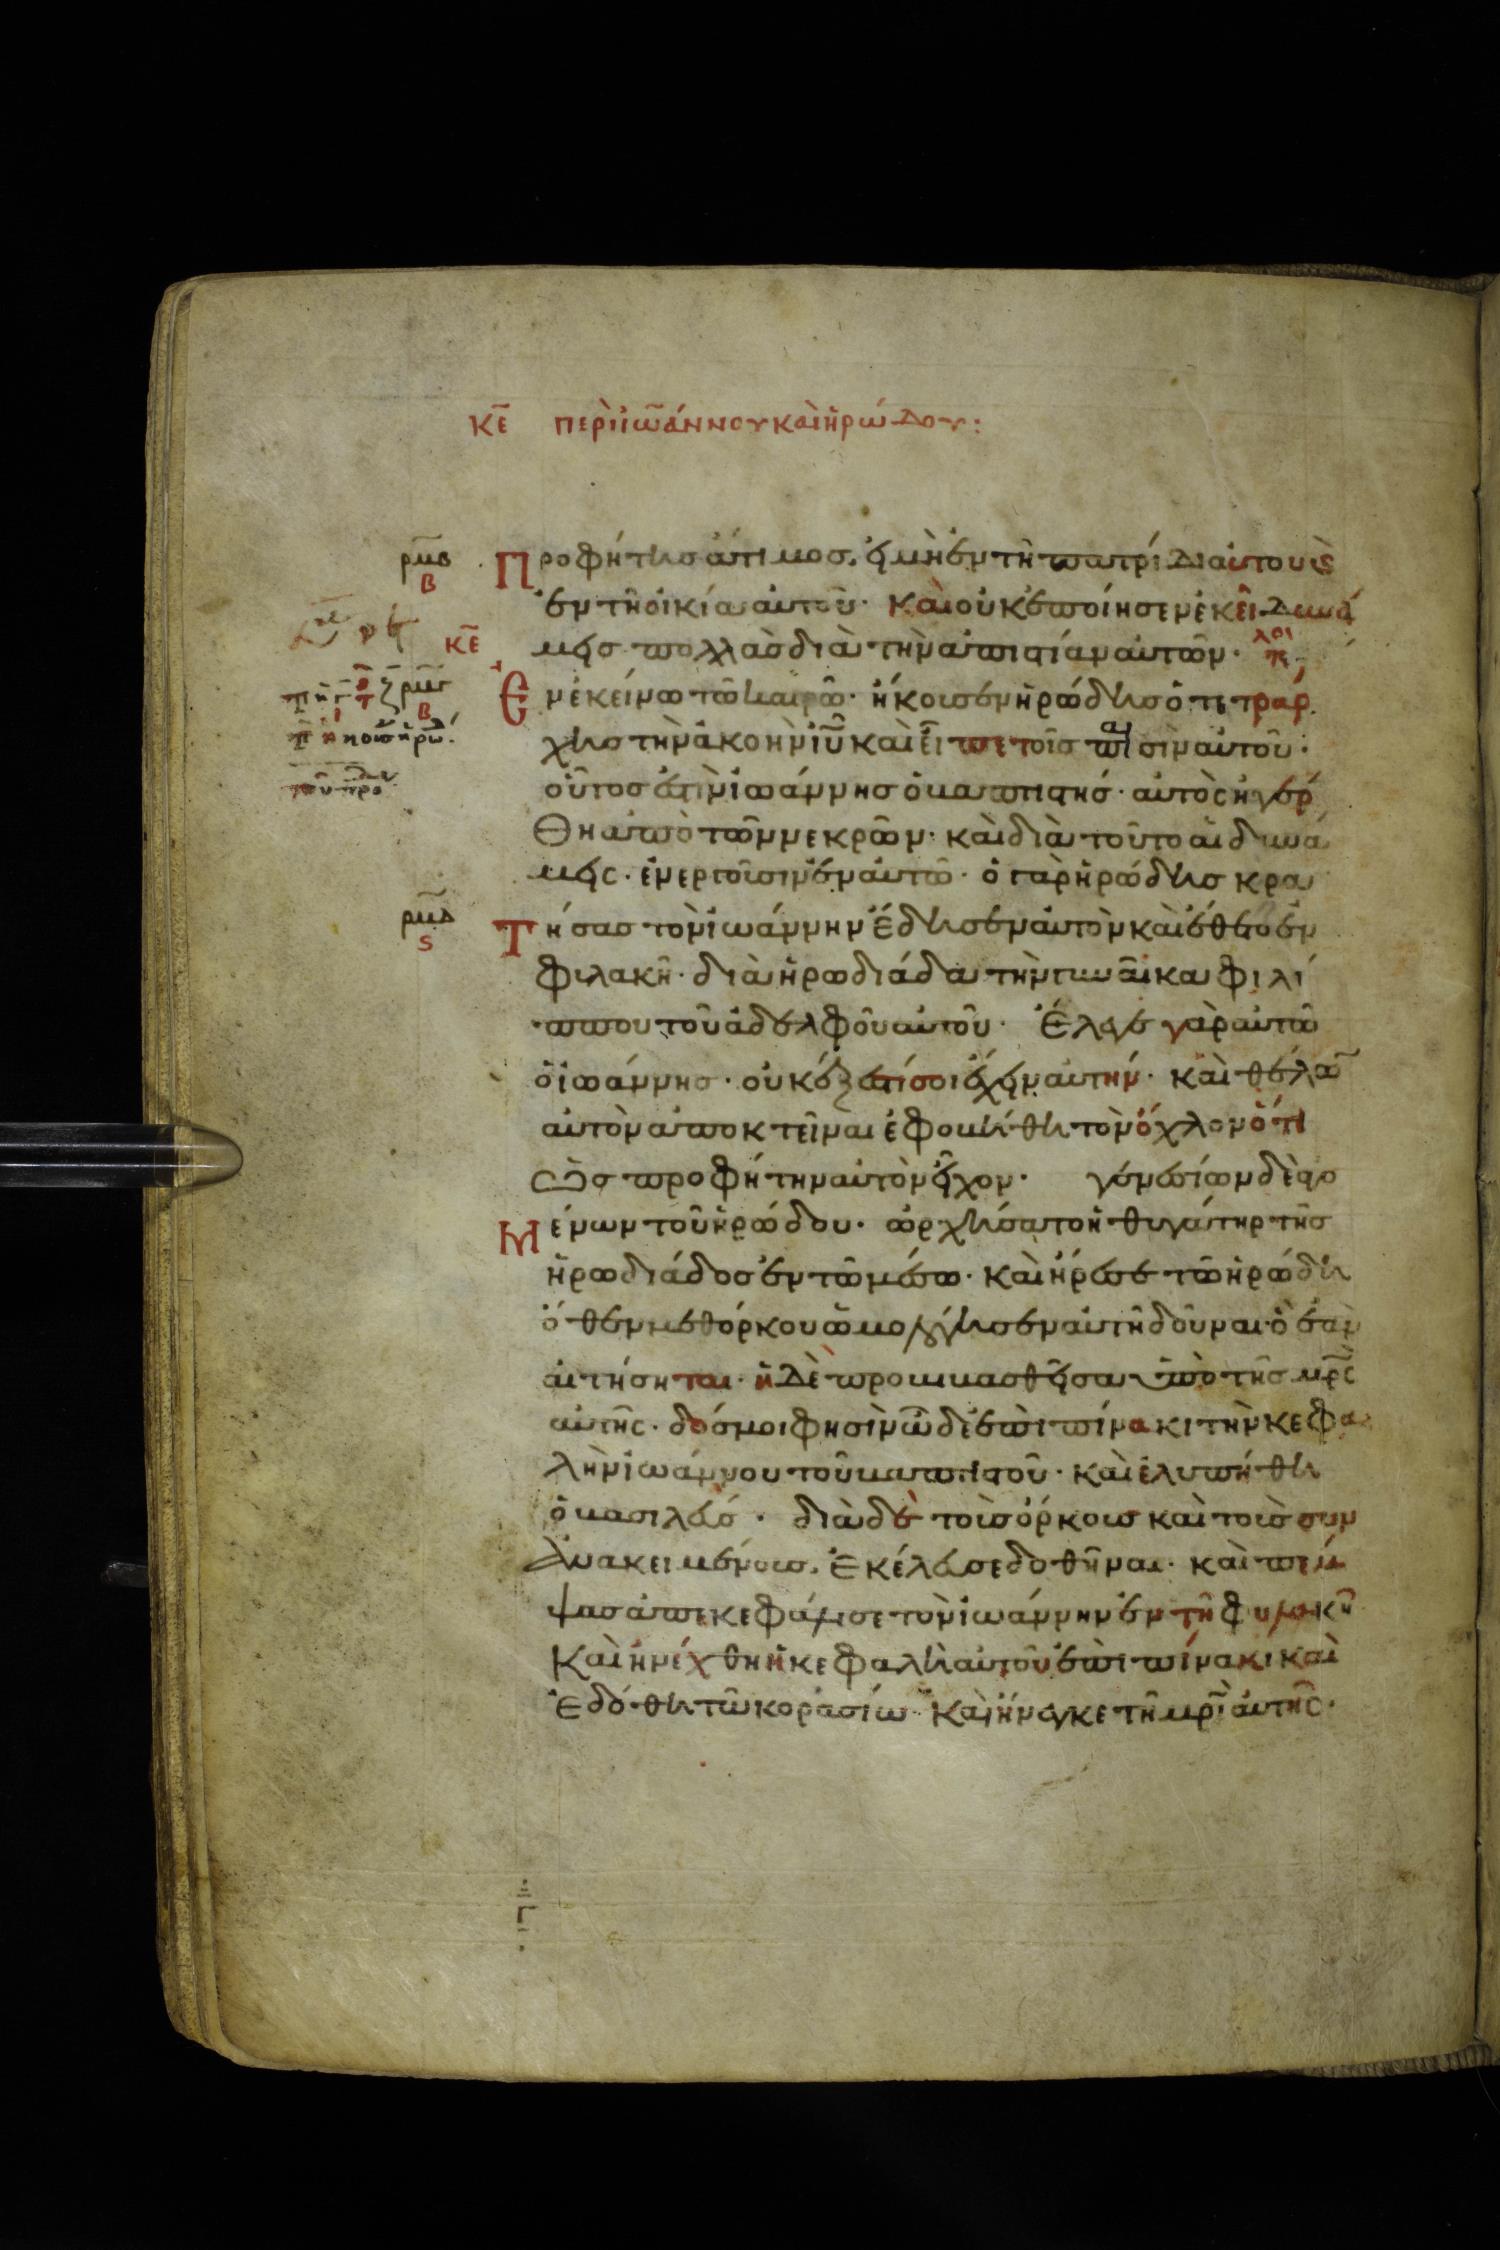 κε περὶ ἰωάννου καὶ ἡρώδου:
ρμβ
β
Προφήτης ἄτιμος, εἰ μὴ ἐν τῆ πατρίδι αὐτοῦ κὶ
ἐν τῆ οἰκία αὐτοῦ· καὶ οὐκ ἐποίησεν ἐκεῖ δυνά
κε
μεις πολλὰς διὰ τὴν ἀπιστίαν αὐτῶν·
ρμγ
β
Ἐν ἐκείνω τῶ καιρῶ· ἤκουσεν ἡρώδης ὁ τετράρ
χης τὴν ἀκοὴν ἰυ καὶ εἶπε τοῖς παισὶν αὐτοῦ·
οὗτος ἐστὶν ἰωάννης ὁ βαπτιστής· αὐτὸς ἠγέρ
θη ἀπὸ τῶν νεκρῶν· καὶ διὰ τοῦτο αἱ δυνά
μεις· ἐνεργοῦσιν ἐν αὐτῶ· ὁ γὰρ ἡρώδης κρα
ρμδ
ς
Τήσας τὸν ἰωάννην ἔδησεν αὐτὸν καὶ ἔθετο ἐν
φυλακῆ· διὰ ἡρωδιάδα τὴν γυναῖκα φιλί
ππου τοῦ ἀδελφοῦ αὐτοῦ· Ἔλεγε γὰρ αὐτῶ
ὁ ἰωάννης· οὐκ ἔξεστί σοι ἔχειν αὐτήν· καὶ θέλω
αὐτὸν ἀποκτεῖναι ἐφοβήθη τὸν ὄχλον ὅτι
ὡς προφήτην αὐτὸν εἶχον· γενεσίων δὲ ἀγο
Μένων τοῦ ἡρώδου· ὠρχήσατο ἡ θυγάτηρ τῆς
ἡρωδιάδος ἐν τῶ μέσω· καὶ ἤρεσε τῶ ἡρώδη
ὅθεν μεθ' ὅρκου ὡμολόγησεν αὐτῆ δοῦναι· ὃ ἐὰν
αἰτήσηται· ἡ δὲ προβιβασθεῖσα ὑπὸ τῆς μρς
αὐτῆς· δός μοι φησὶν ὧδε ἐπὶ πίνακι τὴν κεφα
λὴν ἰωάννου τοῦ βαπτιστοῦ· καὶ ἐλυπήθη
ὁ βασιλεύς· διὰ δὲ τοὺς ὅρκους καὶ τοὺς συν
ἀνακειμένους, Ἐκέλευσε δοθῆναι· καὶ πέμ
ψας ἀπεκεφάλισε τὸν ἰωάννην ἐν τῆ φυλακῆ
Καὶ ἠνέχθη ἡ κεφαλὴ αὐτοῦ ἐπὶ πίνακι καὶ
Ἐδόθη τῶ κορασίω καὶ ἤνεγκε τῆ μρὶ αὐτῆς·